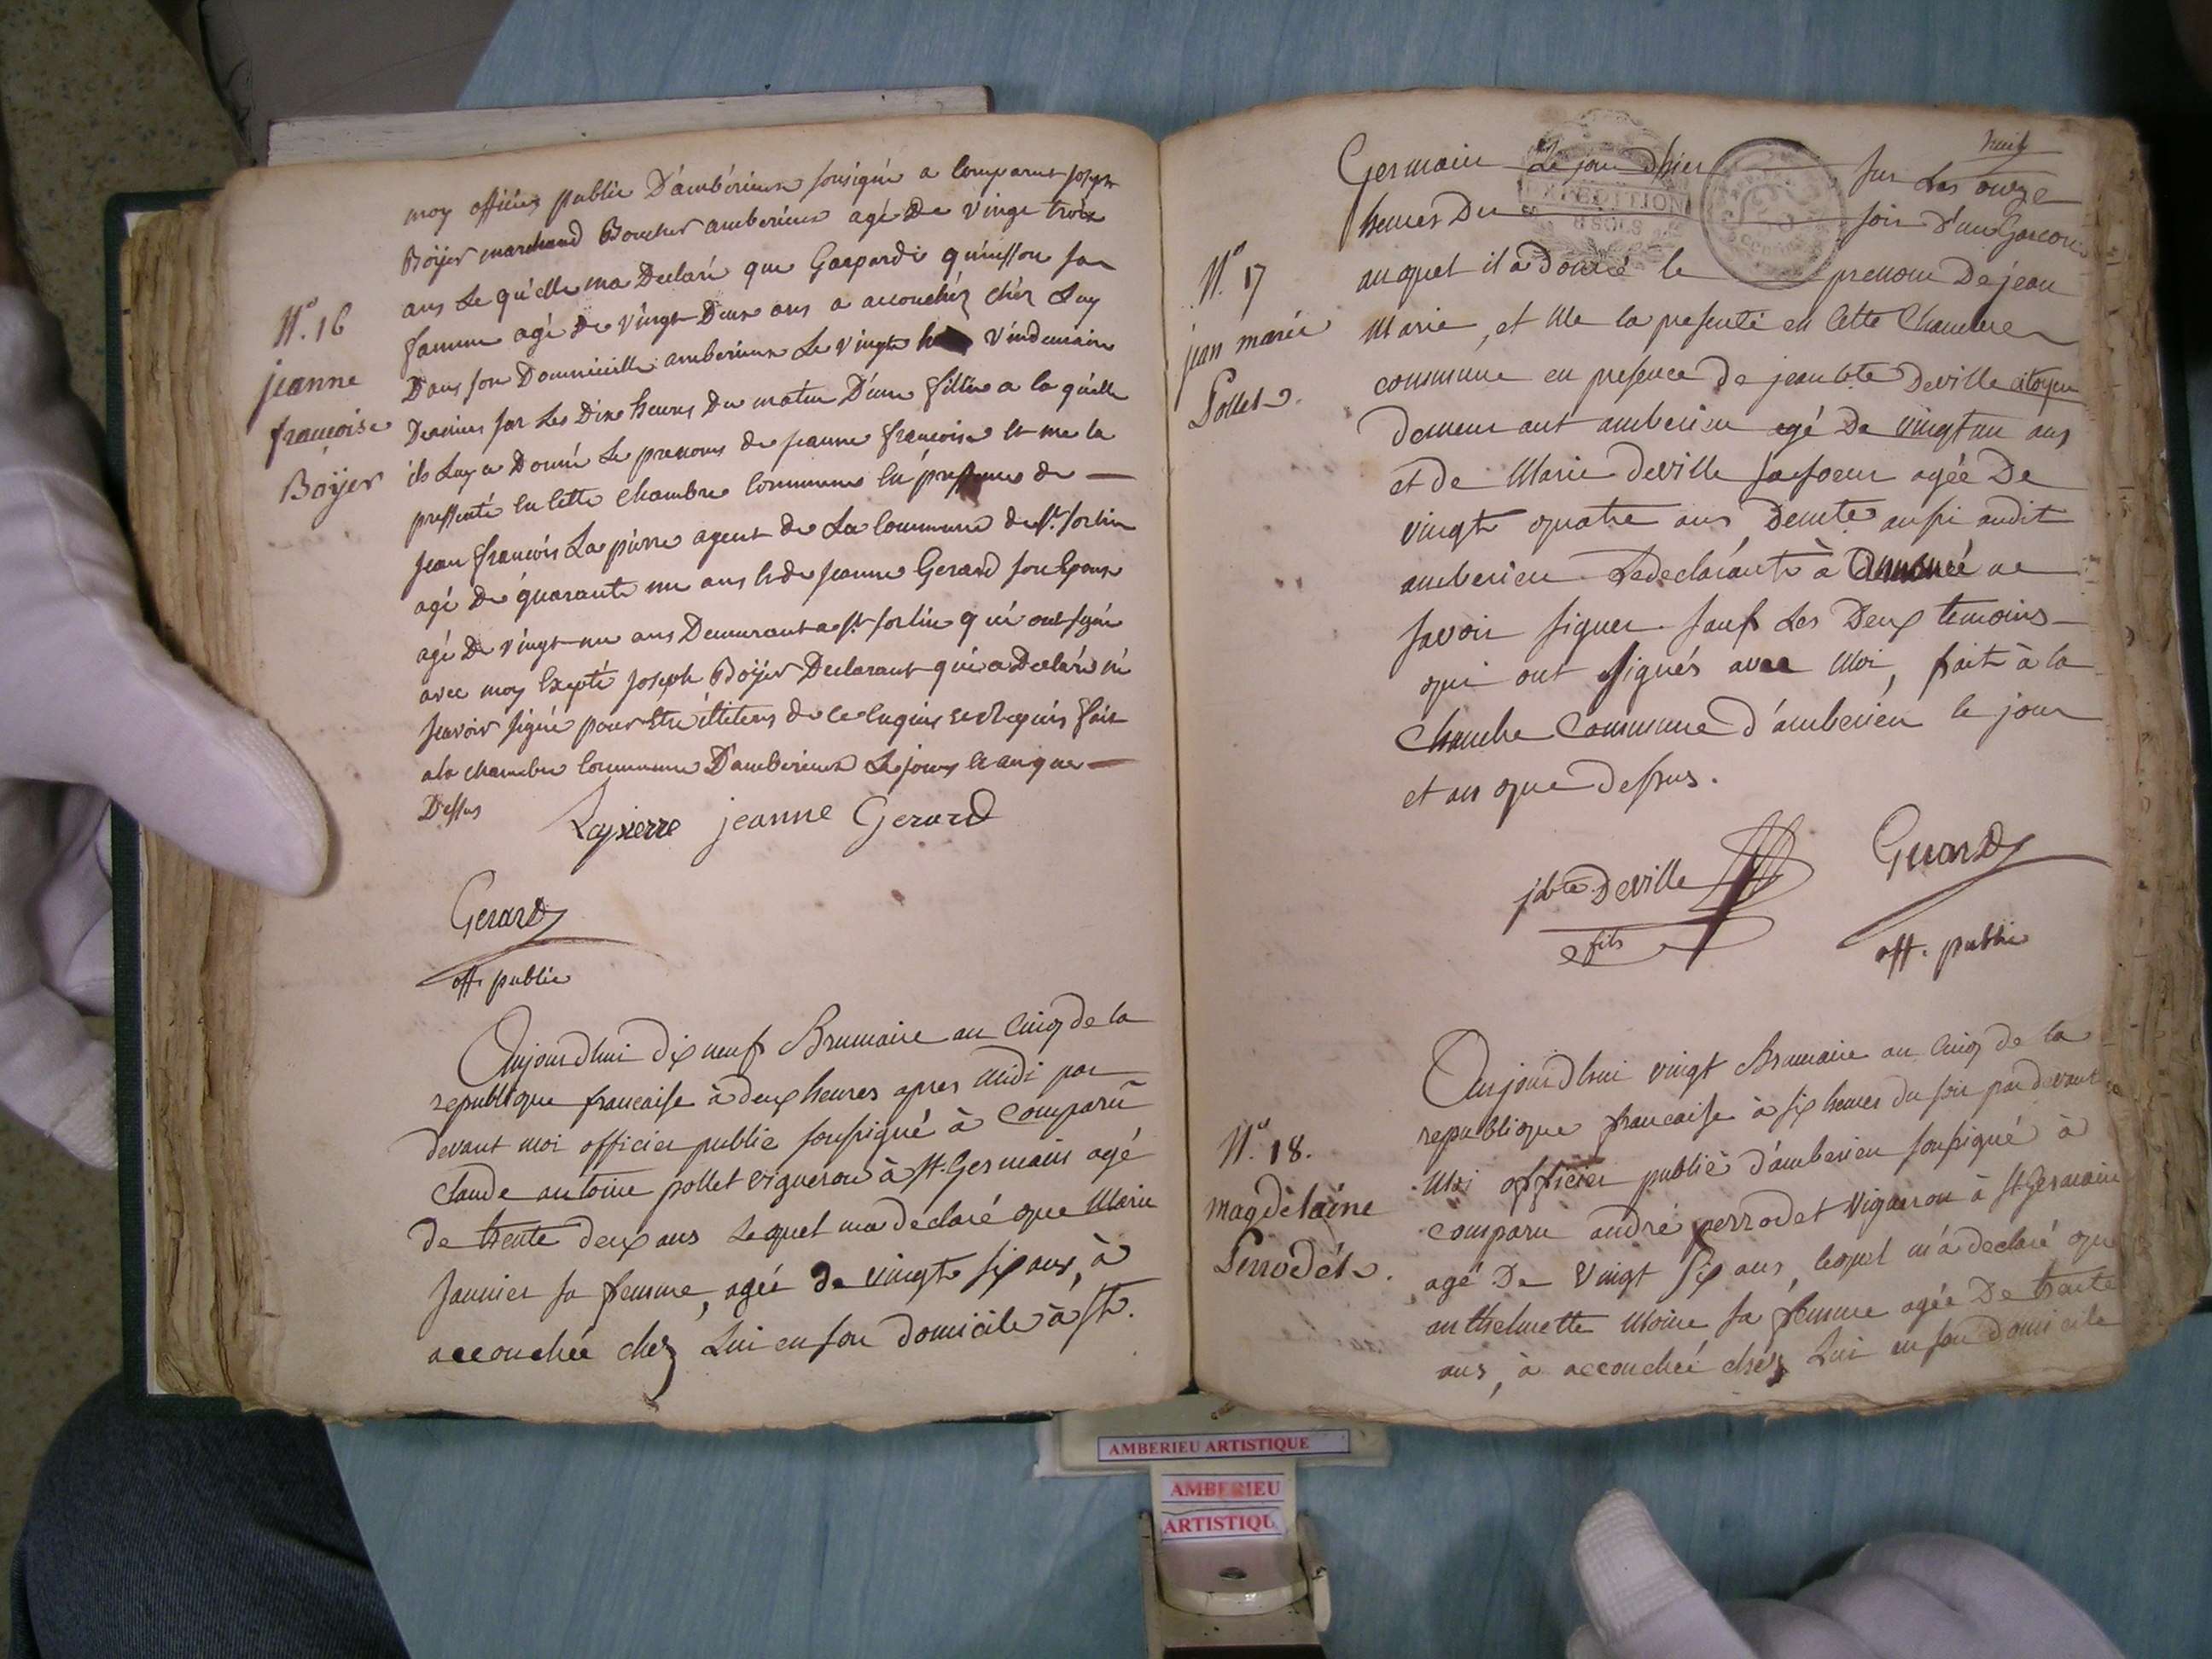 moy officier public D'ambérieux sousigné a comparut joseph
Böÿer marchand Boucher amberieux agé De vingt trois
ans Le quélle ma Declaré que Gaspardi quinsson sa
famme agé de vingt Deux ans a accouchéz chéz Luy
Dans son Dommicille amberieux Le vingt vindemaire
Deanier sur Les Dix heures Du matin D'une fillie a la quélle
ils Luy a Donné Le prenoms de jeanne francoise et me la
pressenté en cette chambre commune en pressence de —
Jean francois Lapierre agent de La commune de St. sorlin
agé de quarante un ans et de jeanne Gerard son Epouse
agé De vingt un ans Demeurant a St sorlin qui ont signé
avec moy Exepté joseph Boÿer Declarant qui a Declaré né
scavoir signé pour être
ala chambre commune D'amberieux Le jours et an que —
Dessus
N.° 16
jeanne
francoise
Böÿer
Lapierre jeanne Gerard
Gerard
off. public
Aujourdhui dix neuf Brumaire an cinq de la
republique francaise à deux heures apres midi par
devant moi officier public soussigné à comparu
Claude antoine pollet vigneron à St. Germain agé
de trente deux ans Lequel ma declaré que Marie
Jannier sa femme, agée de vingt six ans, à
accouchée chez Lui en son domicile à St.
huit
Germain Le jour Dhier sur Les onze
heures Du soir d'un Garcon
EXPEDITION
6 SOLS
N.° 17
jean marie
Pollet.
auquel il a donné le prenom De jean
Marie, et Me la presenté en cette Chambre
commune en presence de jean bte Deville citoyen
demeurant amberieu agé De vingt un ans
et de Marie deville sa soeur agée De
vingt quatre ans Demte aussi audit
amberieu Le declarante à annoncé ne
savoir signer sauf Les Deux temoins —
qui ont signés avec Moi, fait à la
chambre Commune d'amberieu le jour
et an que dessus.
j bte Deville
fils
Gerard
off. public
N.° 18.
magdelaine
Perrodét.
Aujourdhui vingt Brumaire an cinq de la
republique francaise à six heures du soir par devant
Moi officier public d'amberieu soussigné à
comparu andré perrodet Vigneron à St. Germain
agé De Vingt six ans, lequel m'a declaré que
anthelmette Moine sa femme agée De trente
ans, à accouchée chéz Lui en son domicile
AMBERIEU ARTISTIQUE
AMBERIEU
ARTISTIQU